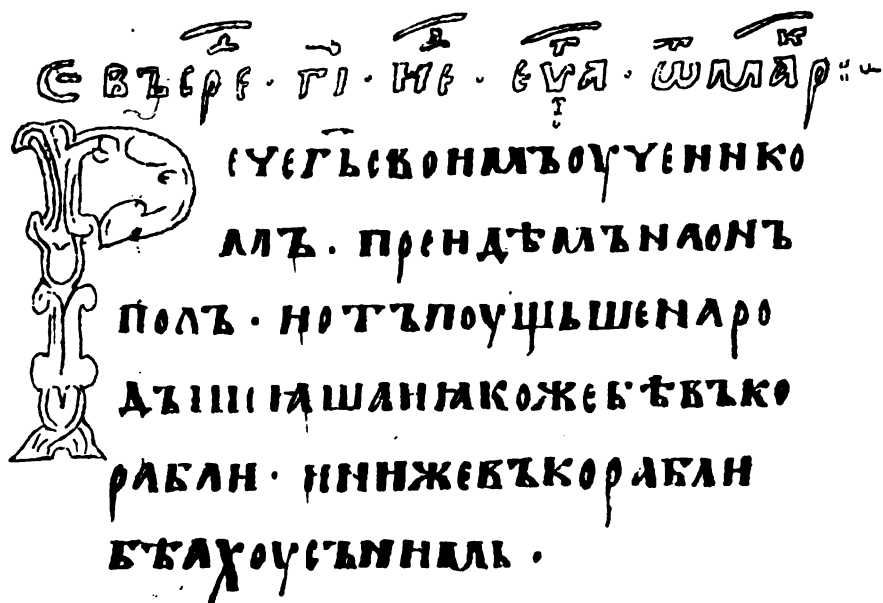 Є въ сре҃д · г҃і · не҃д · еѵа҃т · ѿ ма҃кр ⁘
Речег҃ьсвоимъоученико
мъ · преидѣмънаонъ
полъ · иотъпоущьшенаро
дъипоꙗшаиꙗкожебѣвъко
рабли · иинижевъкорабли
бѣахоусънимь ·